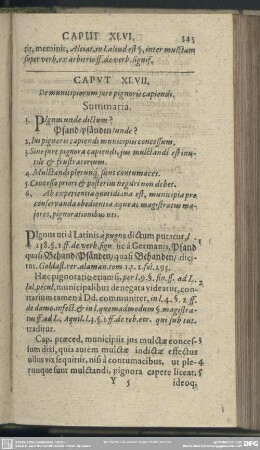 CAPUT XLVI. 343
tit, meminit, Alciat. in l. aliud est §. inter mulctam
super verb. ex arbitrio ff. de verb. signif.
CAPVT XLVII.
De municipiorum jure pignoris capiendi.
Summaria.
1. PIgnus unde dictum?
Pfand/pfänden/unde?
2. Jus pignoris capiendi municipiis concessum.
3. Sine jure pignora capiendi, jus mulctandi est inutile & frustratorium.
4. Mulctandi plerunq; sunt contumaces.
5. Concesso priori & posterius negari non debet.
6. Ab experientia quotidiana est, municipia pro
conservanda obedientia æque ac magistratus majores, pignorationibus uti.
PIgnus uti à Latinis à pugno dictum putatur, l.
238. §. 1. ff. de verb. sign. sic à Germanis, Pfand 1
quasi Behand/Pfänden/ quasi Behanden/ dicitur.
Goldast. rer. alaman. tom. 1. p. 2. fol. 295.
Hæc pignoratio etiamsi, per l. 9. §. fin. ff. ad L.
Jul. pecul. municipalibus denegata videatur, contrarium
tamen à Dd. communiter, in l. 4. §. 2. ff.
de damo. infect. & in l. quemadmodum §. magistratus
ff. ad L. Aquil. l. 3. §. 1. ff. de reb. eor. qui sub tut.
traditur.
Cap. præced. municipiis jus mulctæ concessum
dixi, quia autem mulctæ indictæ effectus
ullus vix sequitur, nisi à contumacibus, ut plerunque
sunt mulctandi, pignora capere liceat,
Y 5 ideoq;